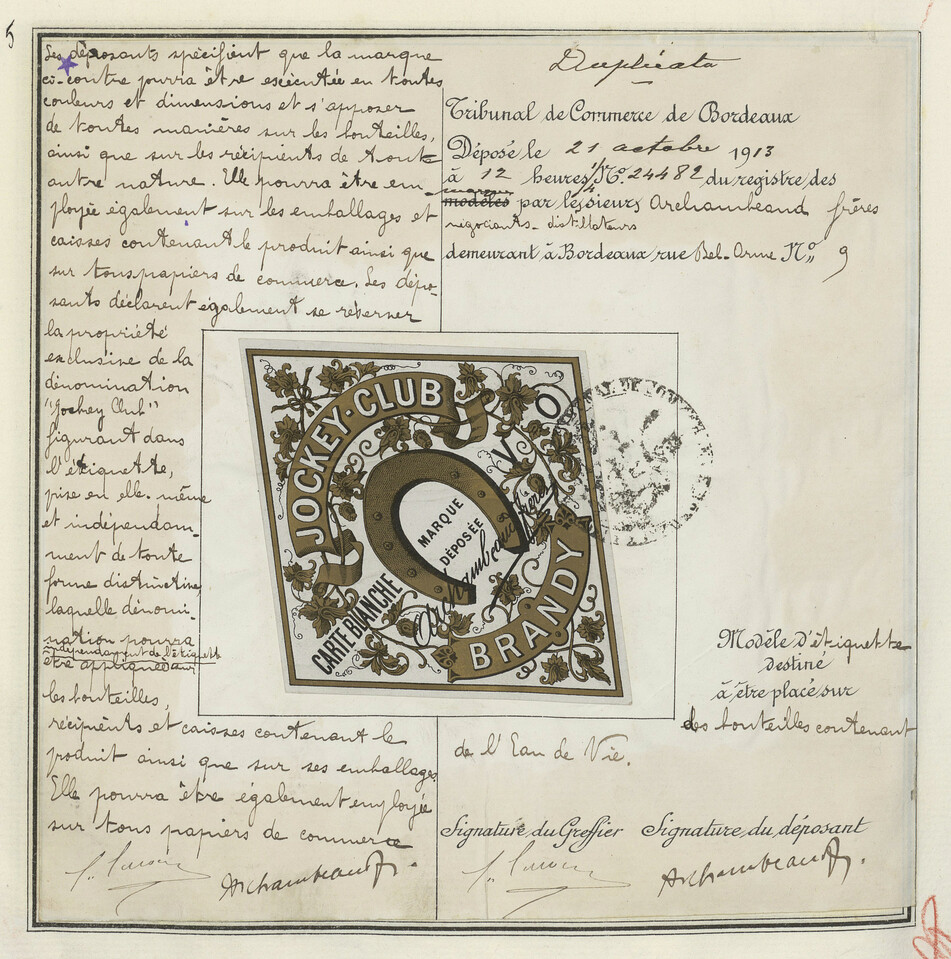 5
Les déposants spécifient que la marque
ci-contre pourra être exécutée en toutes
couleurs et dimensions et s'apposer
de toutes manières sur les bouteilles,
ainsi que sur les récipients de toute
autre nature. Elle pourra être em-
ployée également sur les emballages et
caisses contenant le produit ainsi que
sur tous papiers de commerce. Les dépo-
sants déclarent également se réserver
la propriété
exclusive de la
dénomination
"Jockey Club"
figurant dans
l'étiquette,
prise en elle-même
et indépendam-
ment de toute
forme distinctive,
laquelle dénomi-
nation pourra
indépendamment de l'étiquette
être appliquée sur
les bouteilles,
récipients et caisses contenant le
produit ainsi que sur ses emballages.
Elle pourra être également employée
sur tous papiers de commerce
Archambeaud
Duplicata
Tribunal de Commerce de Bordeaux
Déposé le 21 octobre 1913
à 12 heures 1/4 No. 24482 du registre des
marques
modèles par les sieurs Archambeaud frères
négociants-distillateurs
demeurant à Bordeaux rue Bel-Orme No. 9
JOCKEY-CLUB
V O
MARQUE
DÉPOSÉE
Archambeaud Frères
CARTE BLANCHE
BRANDY
Modèle d'étiquette
destiné
à être placé sur
des bouteilles contenant
de l'Eau de Vie.
Signature du Greffier Signature du déposant
Archambeaud